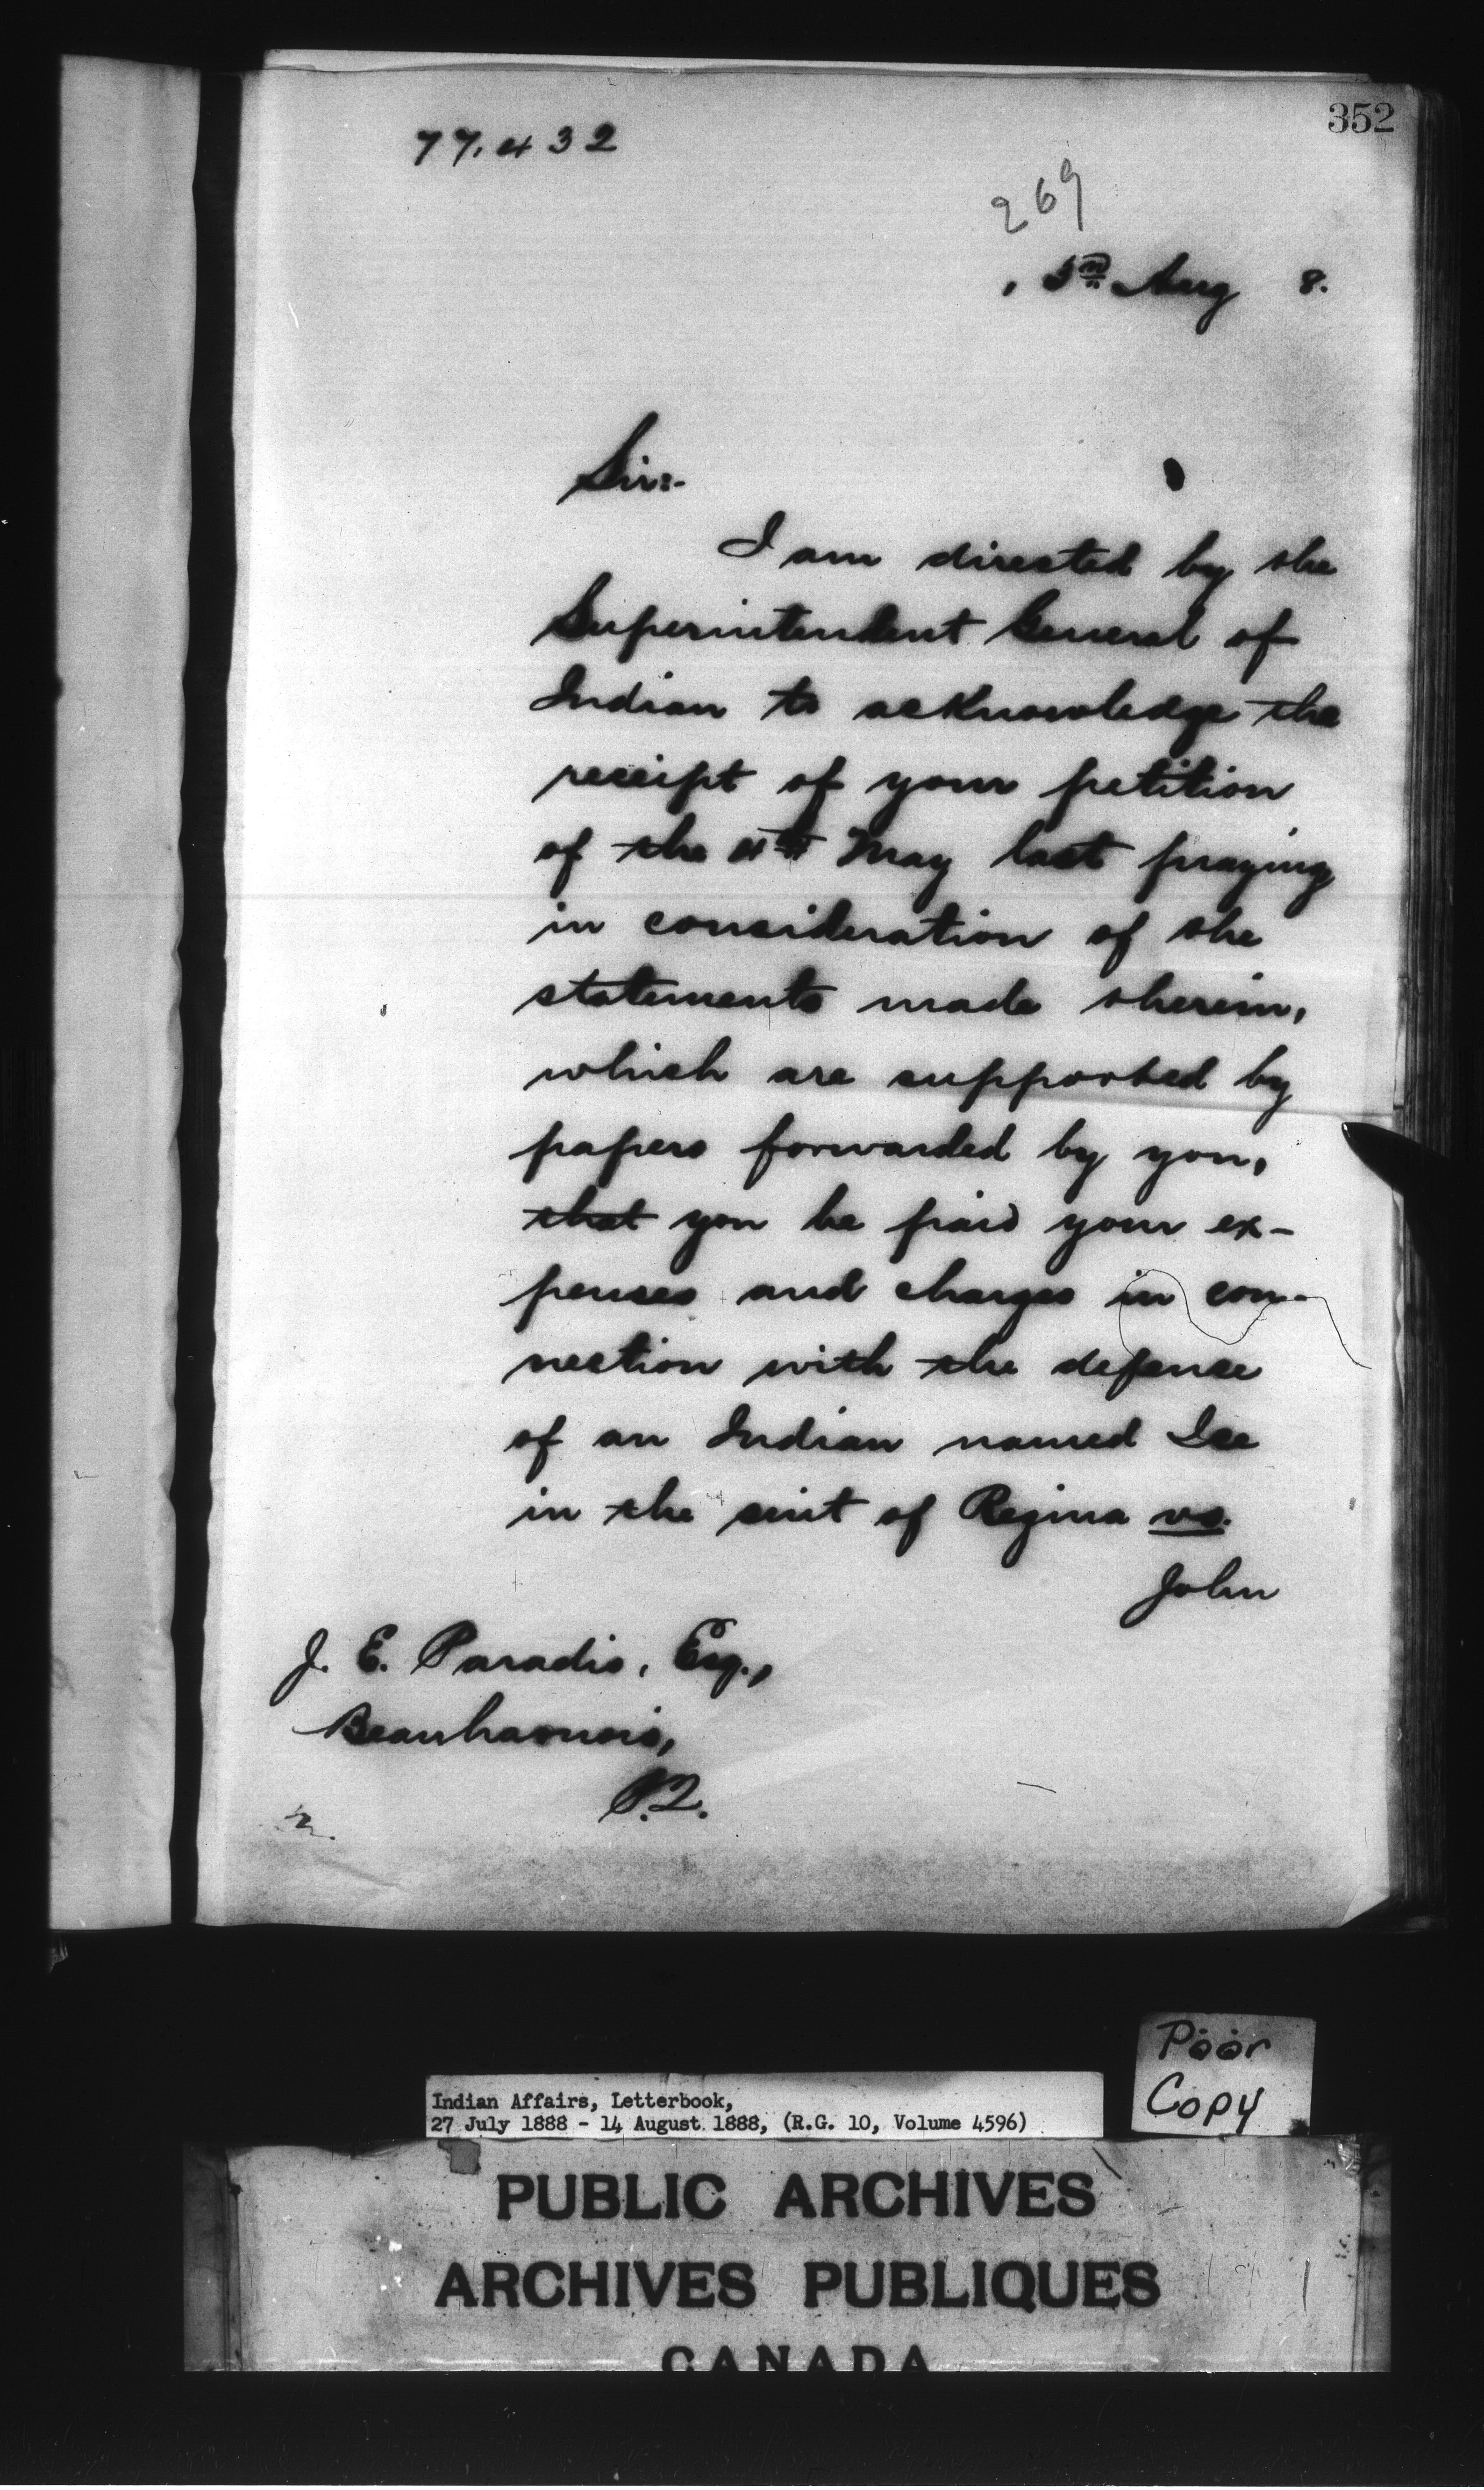 352
77,432
269
3rd Aug 8.
Sir:-
I am directed by the
Superintendent General of
Indian to acknowledge the
receipt of your petition
of the May last praying
in consideration of the
statements made therein,
which are supported by
papers forwarded by you,
that you be paid your ex-
penses and charges in con-
nection with the defense
of an Indian named Ice
in the suit of Regina vs.
John
J. E. Paradis, Esq.,
Beauharnois,
P.Q.
Poor
Copy
Indian Affairs, Letterbook,
27 July 1888 - 14 August 1888, (R.G. 10, Volume 4596)
PUBLIC ARCHIVES
ARCHIVES PUBLIQUES
CANADA